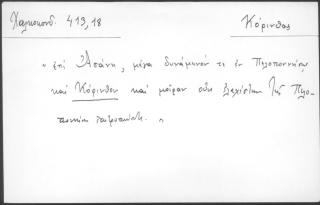 Χαλκοκονδ. 419,18
Κόρινθος
" ἐπὶ Ἀσάνη, μέγα δυνάμενόν τι ἐν Πελοποννήσῳ
καὶ Κόρινθον καὶ μοῖραν οὐκ ἐλαχίστην τῆς Πελο-
ποννήσου "